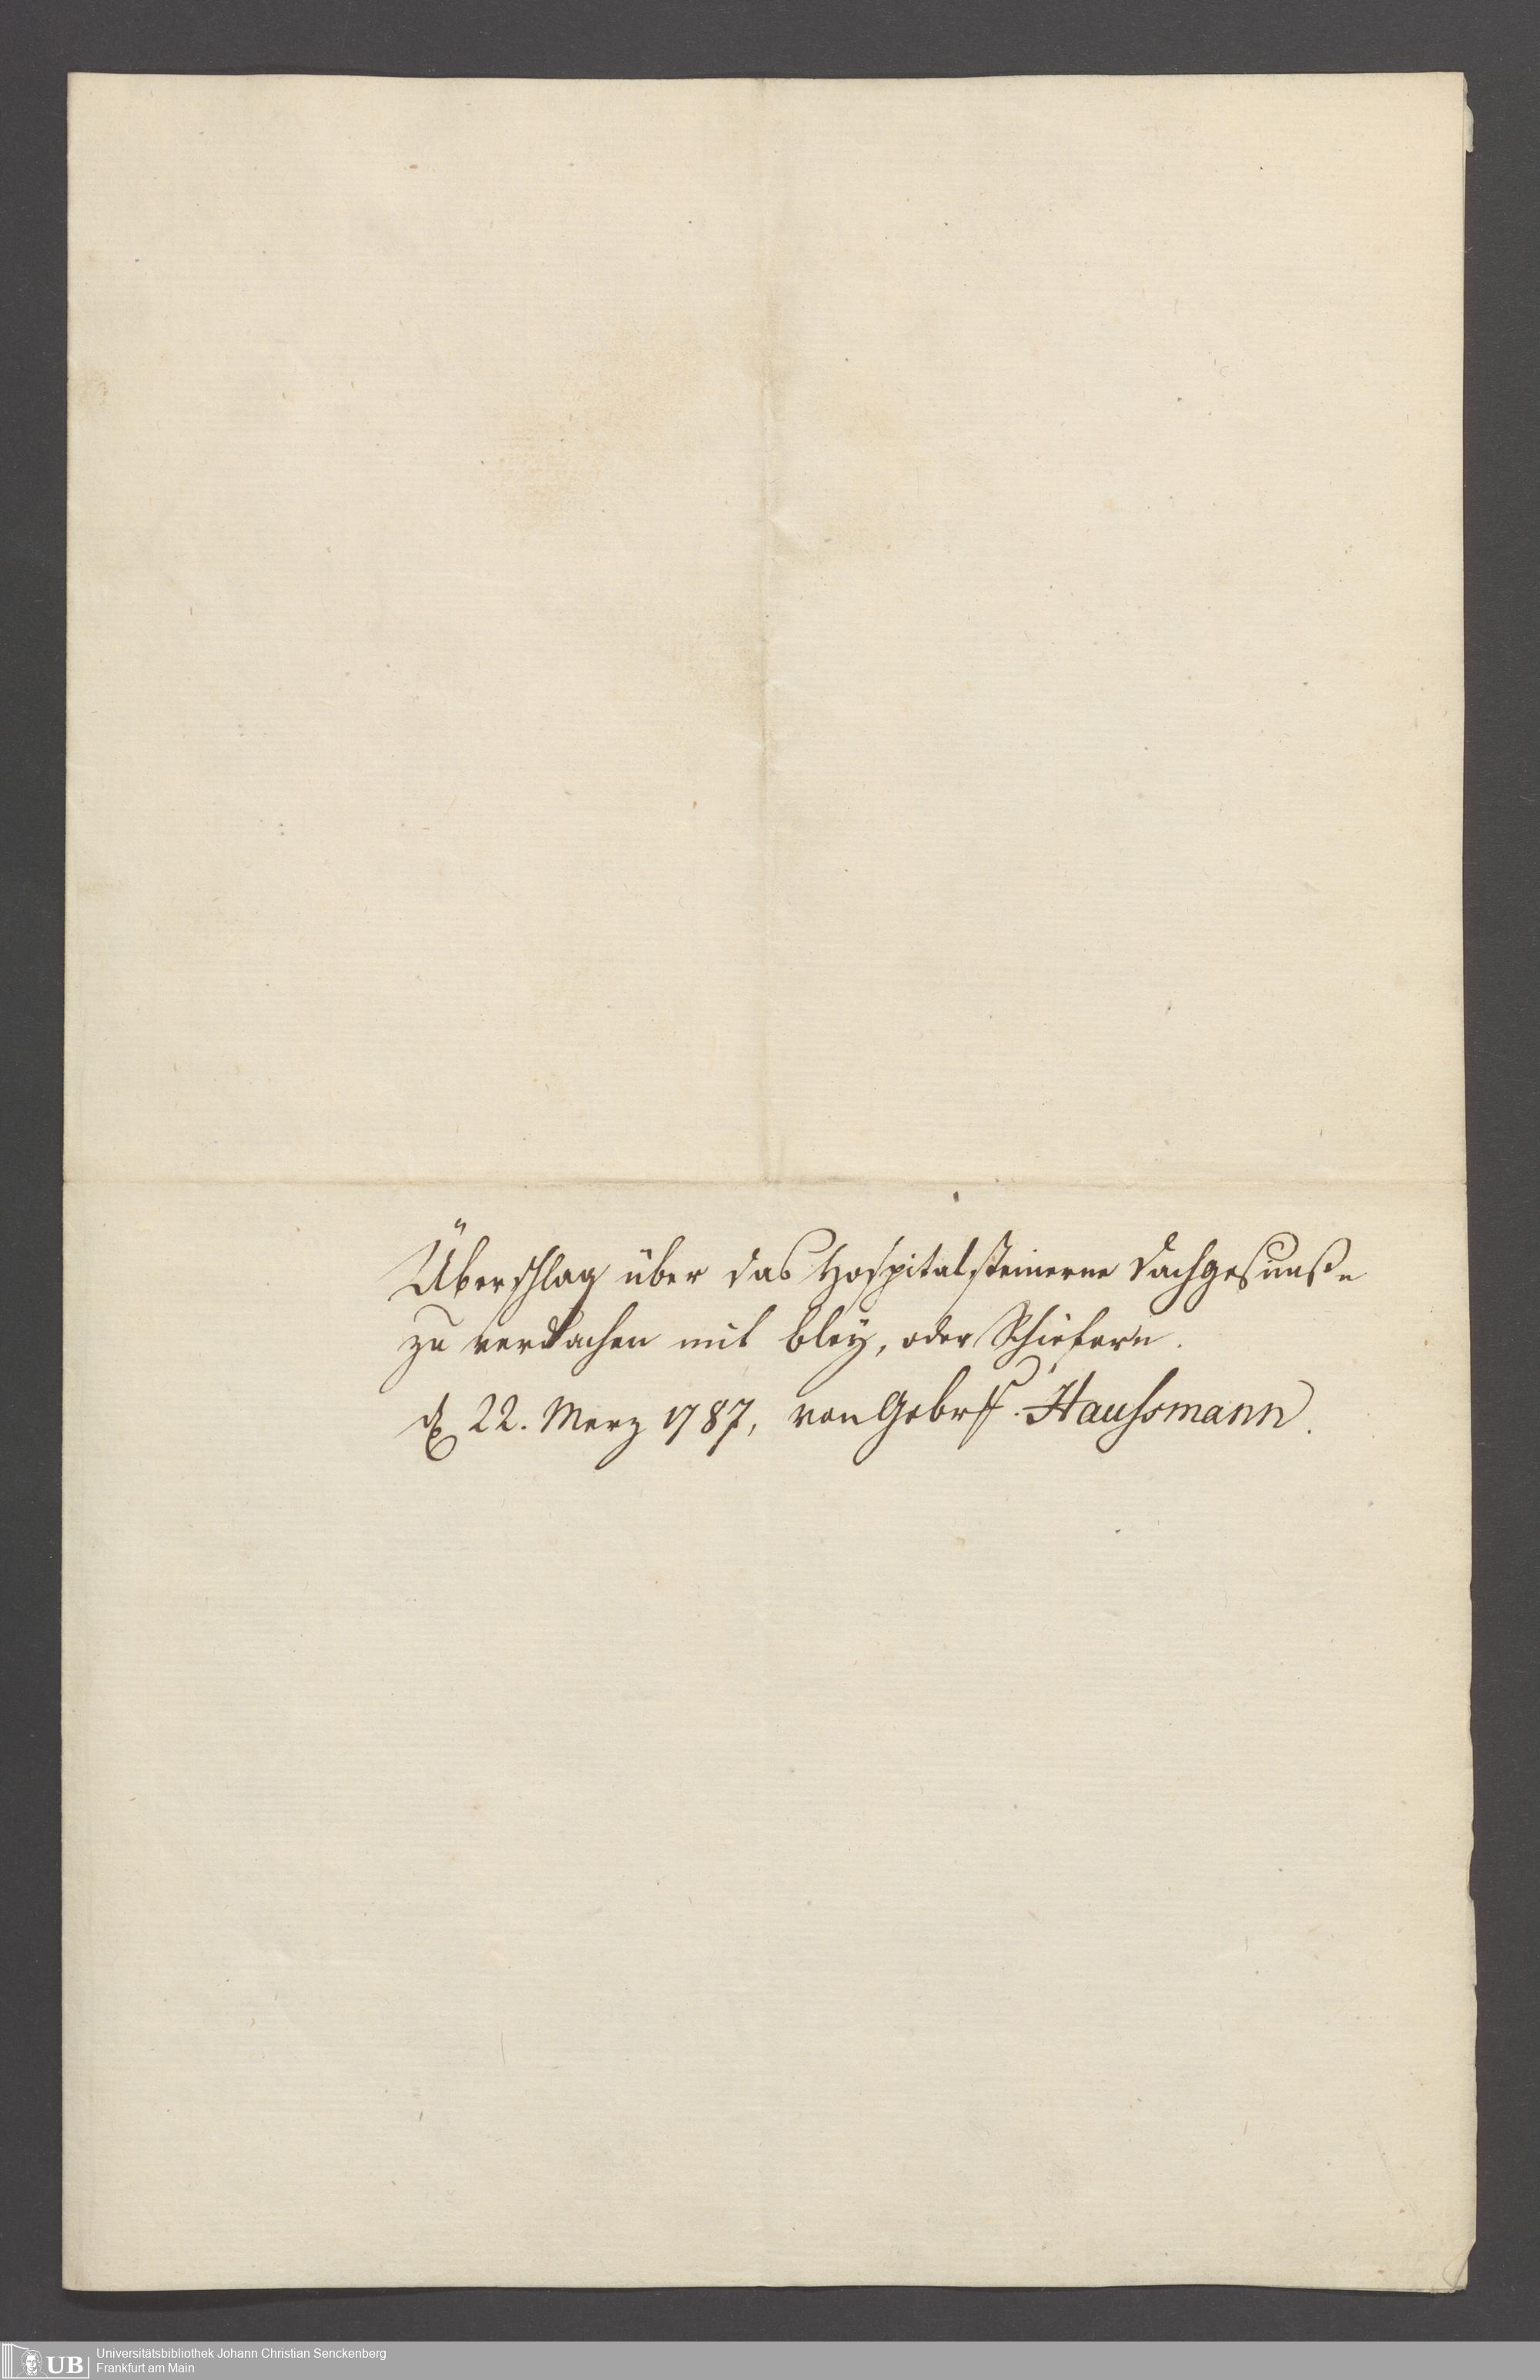 Überschlag über das Hospital steinerne Dachgesimße
zu verdachen mit bley, oder Schiefern.
22. Merz 1787, von Gebr. Haussmann.
UB
Universitätsbibliothek Johann Christian Senckenberg
Frankfurt am Main